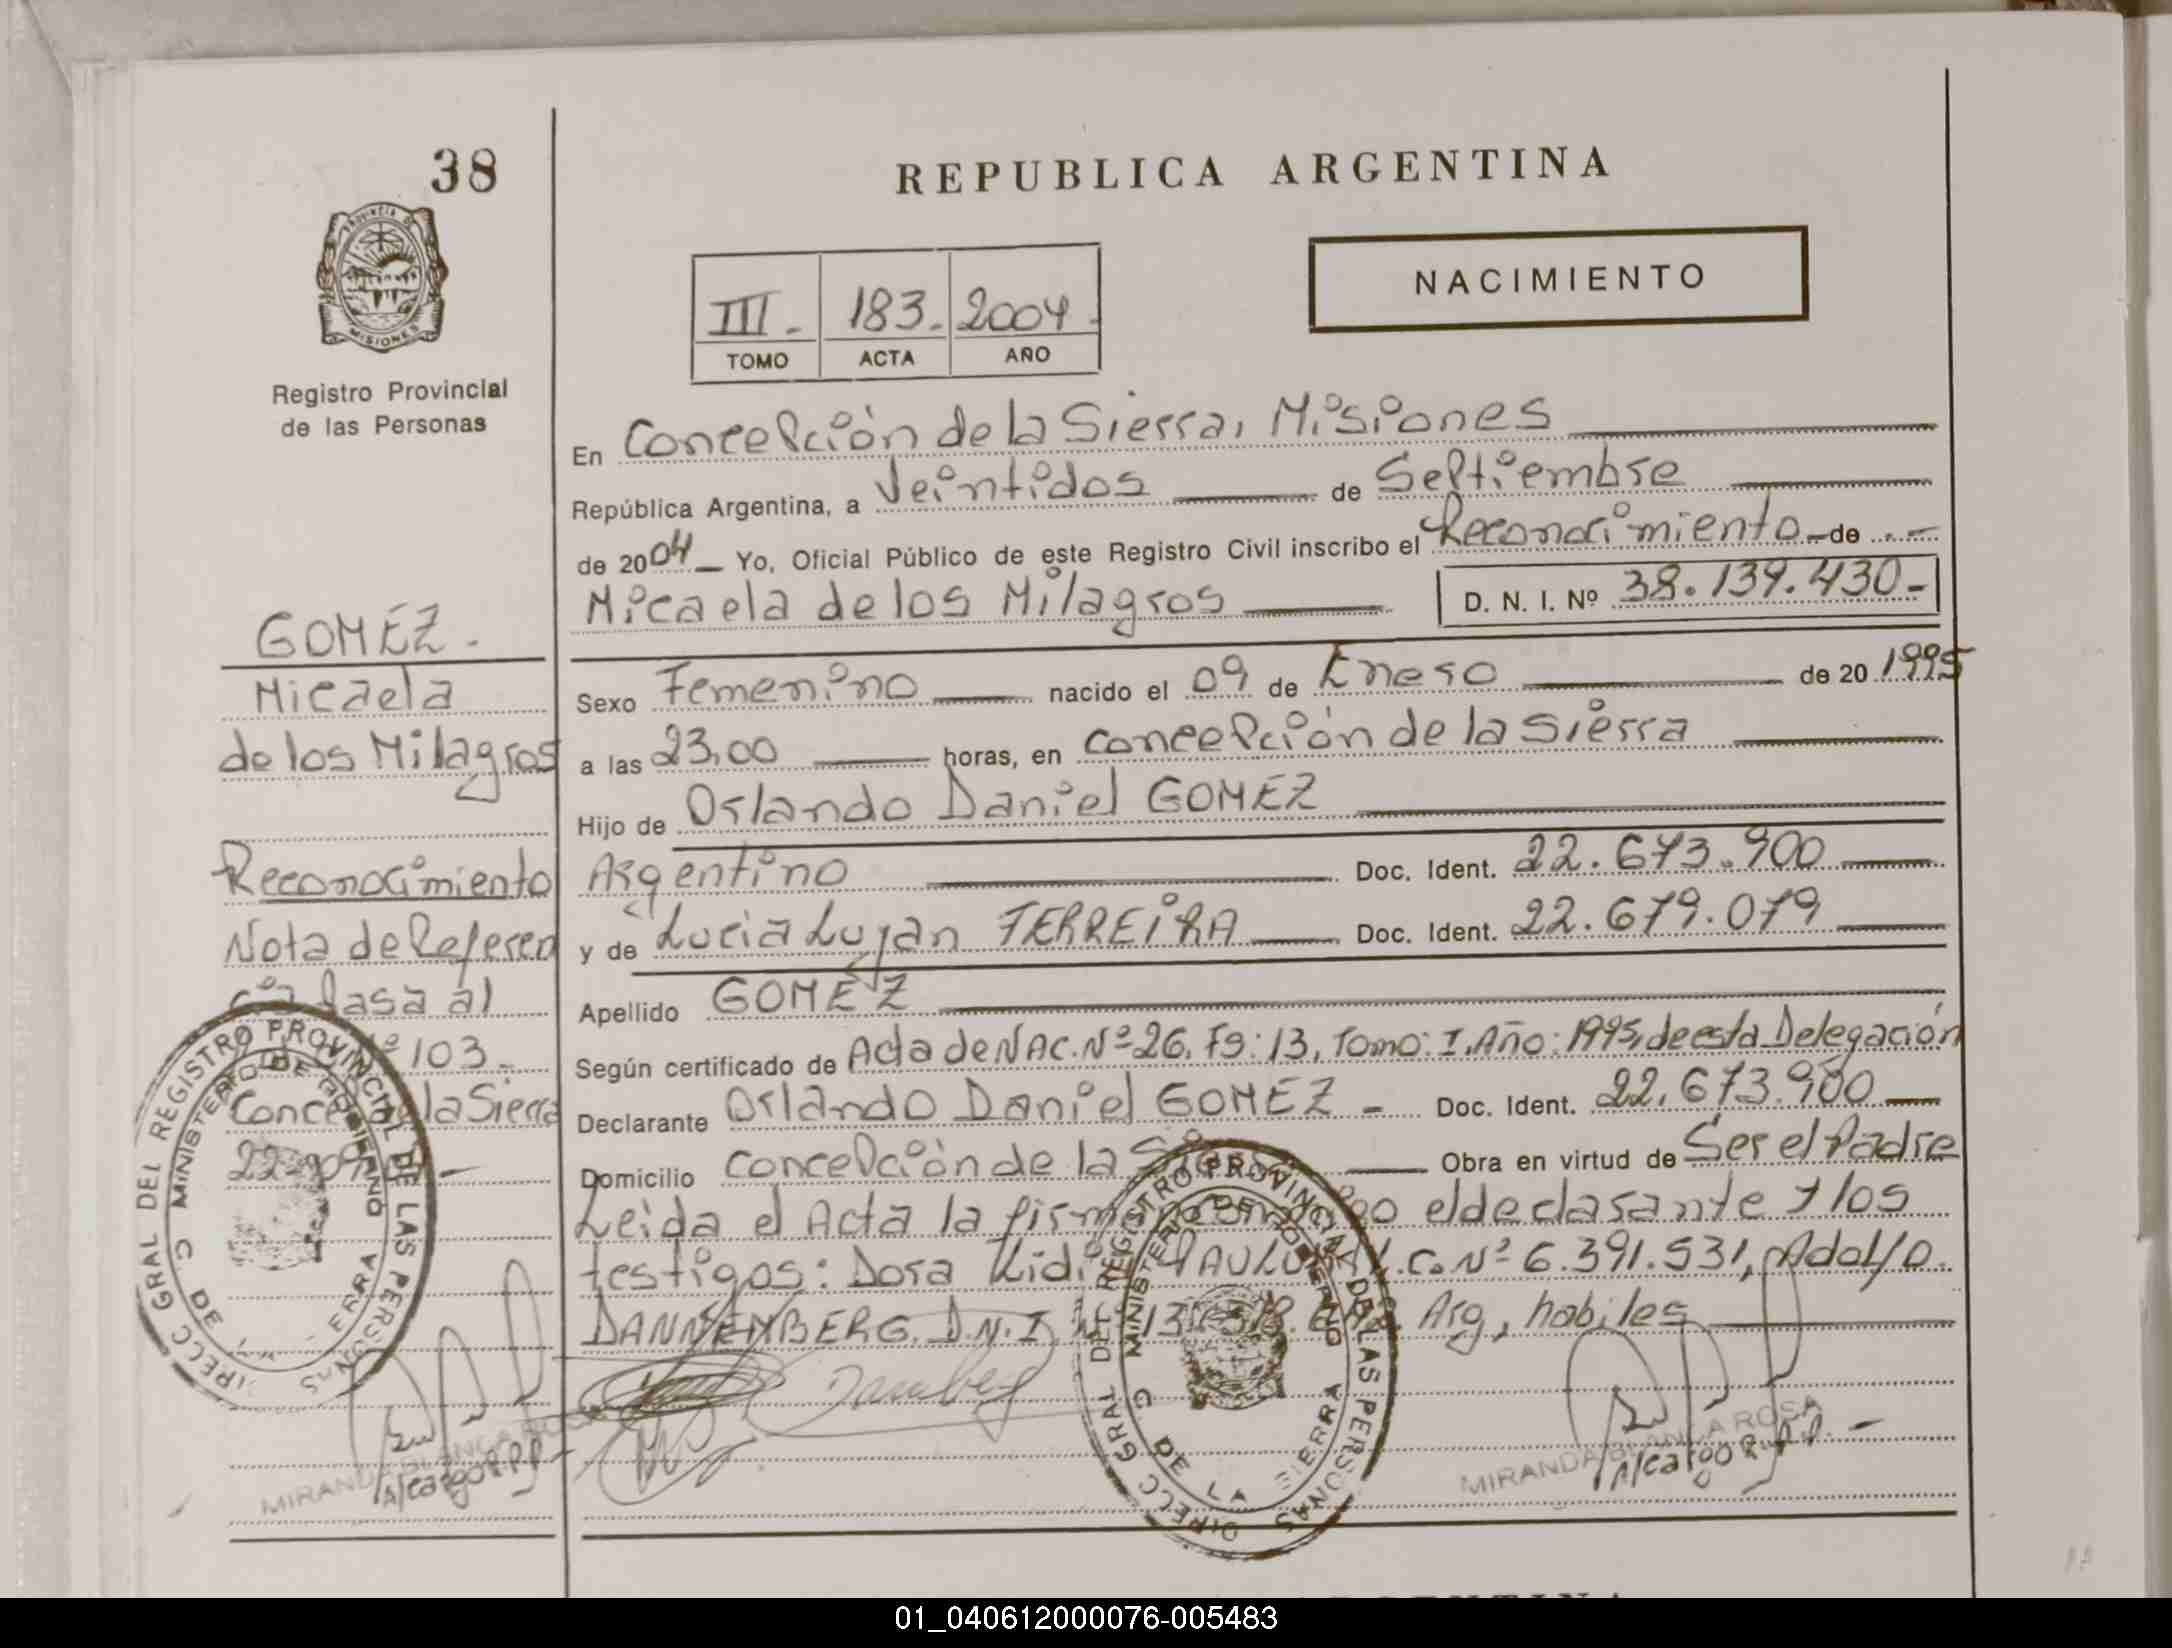 38
PROVINCIA DE
MISIONES
Registro Provincial
de las Personas
GOMEZ.-
Micaela
de los Milagros
Reconocimiento
Nota de Referen
cia Pasa al
103.-
la Sierra
REPUBLICA ARGENTINA
III.- 183.- 2004.-
TOMO ACTA AÑO
NACIMIENTO
En Concepción de la Sierra, Misiones
República Argentina, a Veintidos de Septiembre
de 2004 Yo, Oficial Público de este Registro Civil inscribo el Reconocimiento de
Micaela de los Milagros D. N. I. Nº 38.139.430-
Sexo Femenino nacido el 09 de Enero de 20 1995
a las 23,00 horas, en Concepción de la Sierra
Hijo de Orlando Daniel GOMEZ
Argentino Doc. Ident. 22.673.900
y de Lucia Lujan FERREIRA Doc. Ident. 22.679.079
Apellido GOMEZ
Según certificado de Acta de NAC. Nº 26, Fº: 13, Tomo: I, Año: 1995, de esta Delegación
Declarante Orlando Daniel GOMEZ - Doc. Ident. 22.673.900
Domicilio Concepción de la Obra en virtud de Ser el Padre
Leida el Acta la firman el declarante y los
testigos: Dora L.C. Nº 6.391.531, Adolfo
DANNEMBERG. D.N.I. Arg, habiles
MIRANDA BLANCA ROSA
A/cargo R.P.P.
MIRANDA BLANCA ROSA
A/cargo R.P.P.-
DIRECC GRAL DEL REGISTRO PROVINCIAL DE LAS PERSONAS
MINISTERIO DE GOBIERNO
DIRECC GRAL DEL REGISTRO PROVINCIAL DE LAS PERSONAS
MINISTERIO DE GOBIERNO
C DE LA SIERRA
01_040612000076-005483